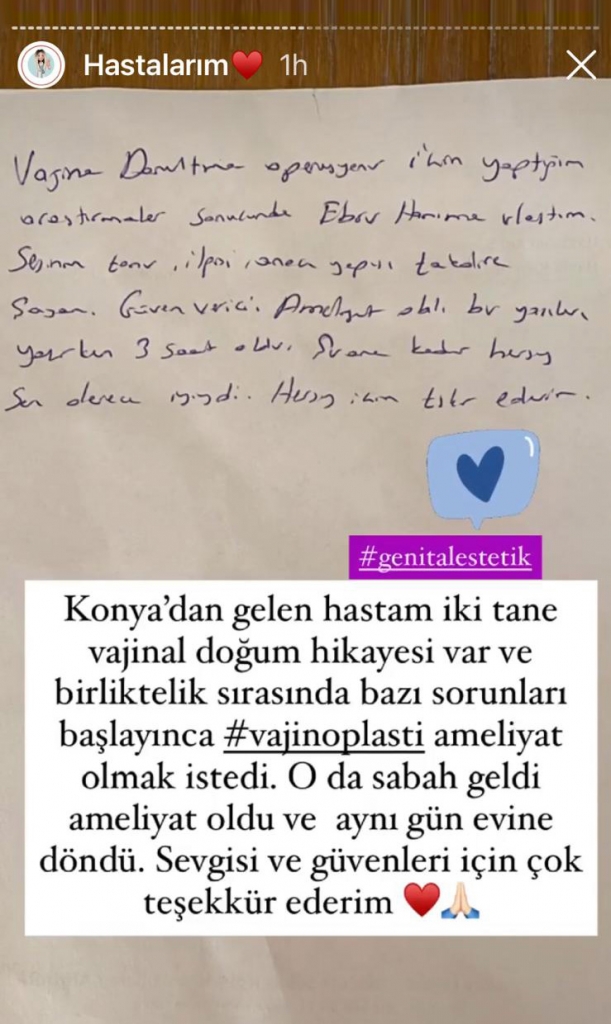 Hastalarım❤️ 1h
Vagina Daraltma operasyonu için yaptığım
araştırmalar sonucunda Ebru Hanıma ulaştım.
Sesinin tonu, ilgisi, yapısı takdire
Şayan. Güven verici. Ameliyat olalı bu yazıları
yazarken 3 saat oldu. Şu ana kadar herşey
Son derece iyiydi. Herşey için tşkr ederim.
#genitalestetik
Konya’dan gelen hastam iki tane
vajinal doğum hikayesi var ve
birliktelik sırasında bazı sorunları
başlayınca #vajinoplasti ameliyat
olmak istedi. O da sabah geldi
ameliyat oldu ve aynı gün evine
döndü. Sevgisi ve güvenleri için çok
teşekkür ederim ❤️🙏🏻